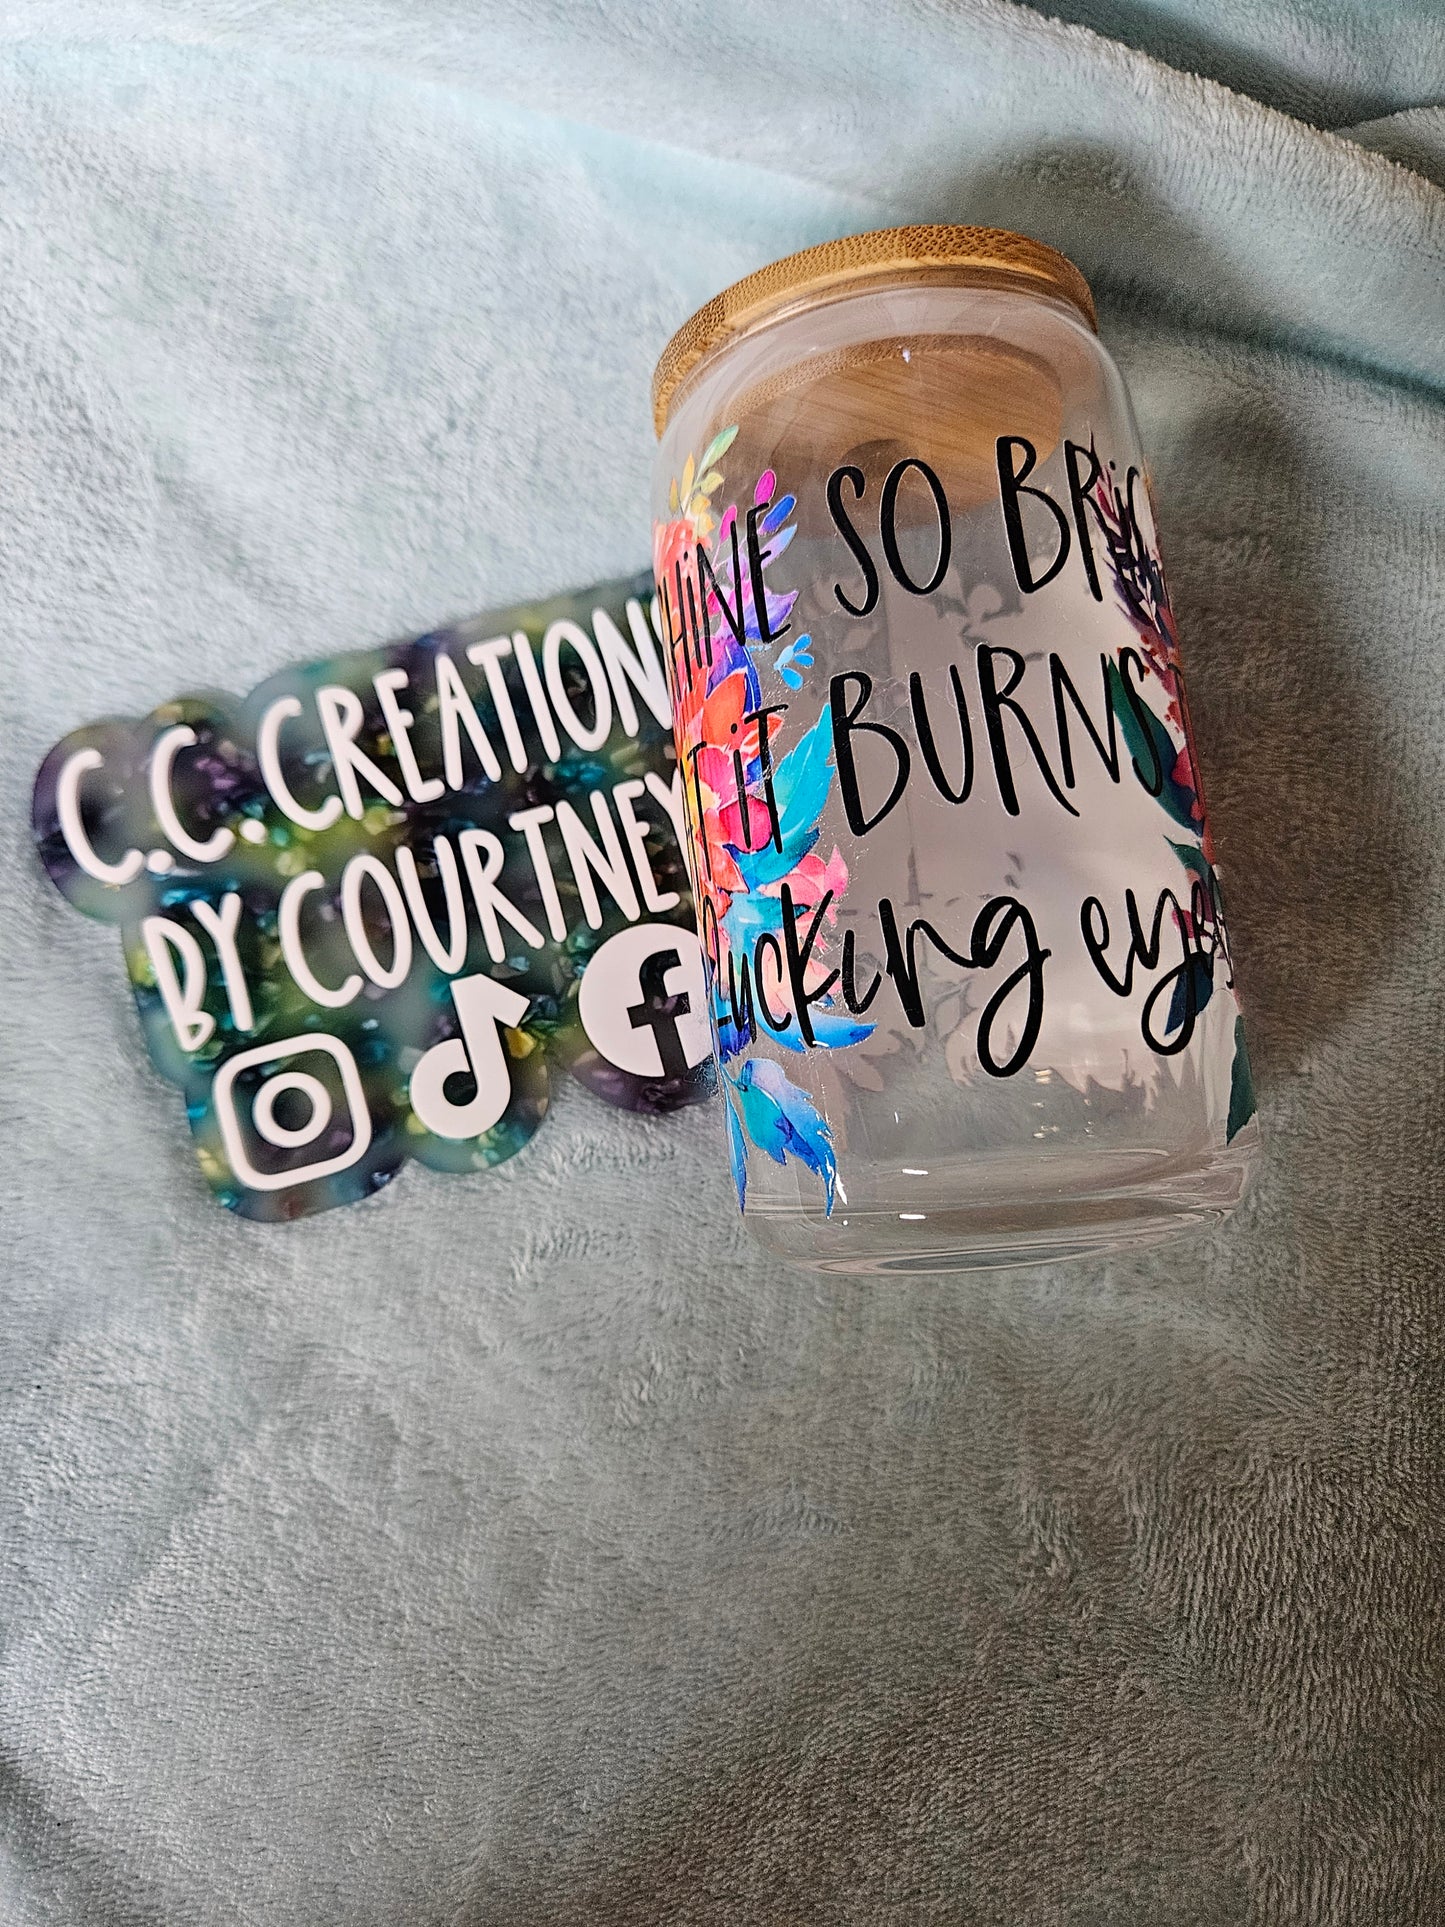 C.C. CREATIONS
BY COURTNEY
SHiNE SO BRiG
iT BURNS T
Fucking eyes